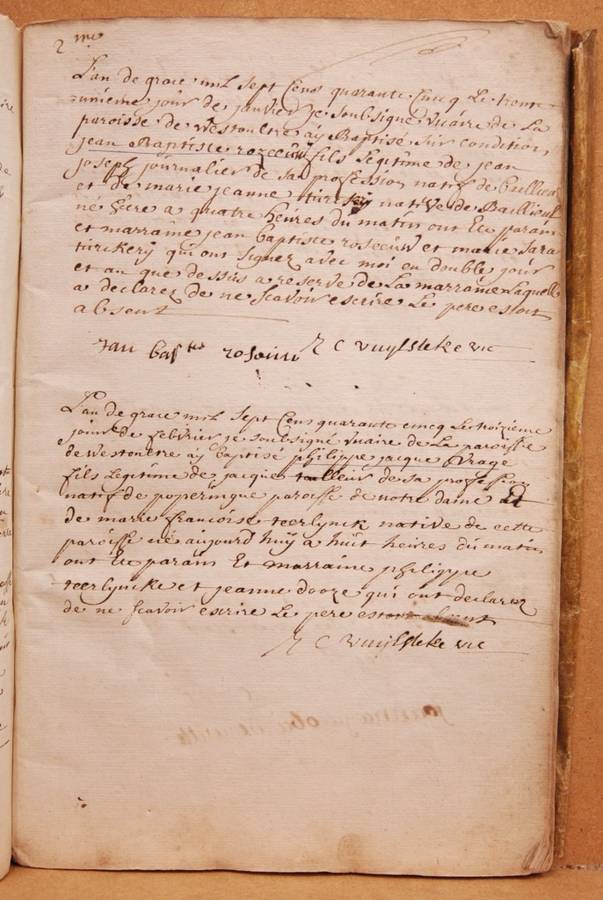 2 me
L'an de grace mil sept Cens quarante Cincq Le trente
unieme jour de janvier je soubsigné vicaire de La
paroisse de westoultre aij Baptisé sur condition
jean Baptiste rozeeuw fils legitime de jean
joseph journalier de sa profession natif de
et de marie jeanne natîve de Baillieul
né hiere a quatre heures du matin ont Eté parain
et marrame jean baptiste roseeuw et marie sara
turckerij qui ont signez avec moi en double jour
et an que dessus a reserve de La marraine Laquelle
a declarez de ne scavoir escrire Le pere estoit
absent
Jan bap tis rosoiuw J C vuijlsteke vic
L'an de grace mil sept Cens quarante cincq Le troizieme
jour de febvrier je soubsigné vicaire de La paroisse
de westoultre aij baptisé philippe jacque
fils Legitime de jacque tailleur de sa profession
natif de poperingue paroisse de notre dame et
de marie francoise teerlynck native de cette
paroisse né aujourd huij a huit heures du matin
ont Eté parain Et marraine philippe
teerlyncke et jeanne dooze qui ont declarez
de ne scavoir escrire Le pere estant absent
J C vuijlsteke vic